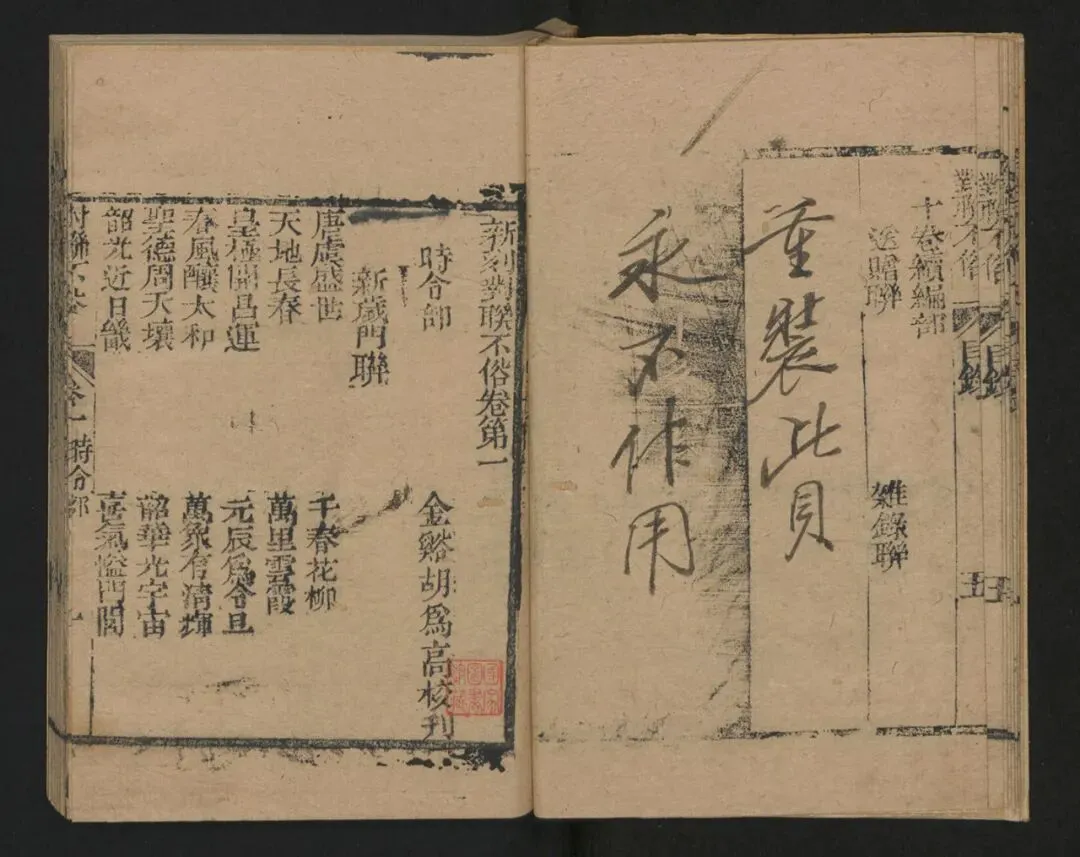 對聯不俗
目錄
五
十卷續編部
送贈聯
雜錄聯
重裝此頁
永不作用
新刻對聯不俗卷第一
時令部
金谿胡為高校刊
新歲門聯
唐虞盛世
千春花柳
天地長春
萬里雲霞
皇極開昌運
元辰為令旦
春風釀太和
萬象有清輝
聖德周天壤
韶華光宇宙
韶光近日畿
喜氣溢門閭
對聯不俗
卷一
時令部
一